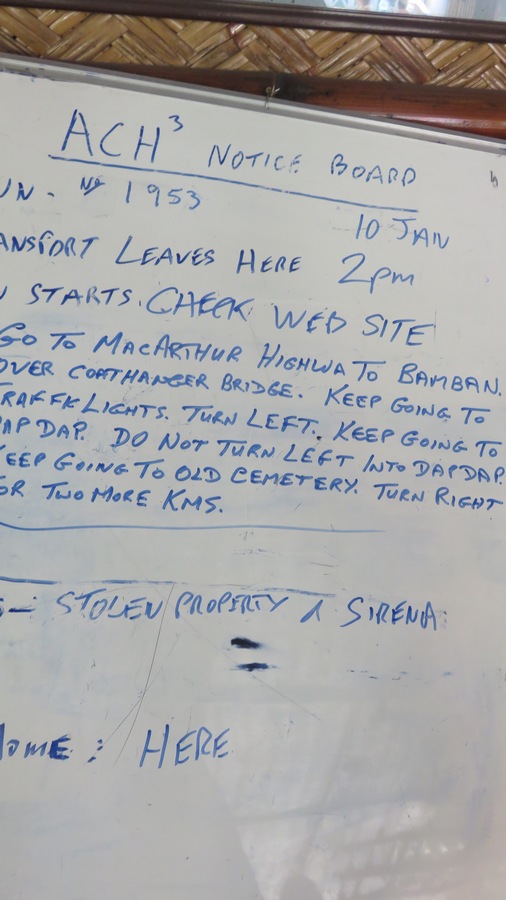 ACH³ NOTICE BOARD
UN. Nº 1953
10 JAN
ANSPORT LEAVES HERE 2pm
N STARTS. CHECK WEB SITE
GO TO MACARTHUR HIGHWA TO BAMBAN.
OVER COATHANGER BRIDGE. KEEP GOING TO
RAFFK LIGHTS. TURN LEFT. KEEP GOING TO
AP DAP. DO NOT TURN LEFT INTO DAPDAP.
KEEP GOING TO OLD CEMETERY. TURN RIGHT
OR TWO MORE KMS.
S - STOLEN PROPERTY & SIRENA
HOME : HERE